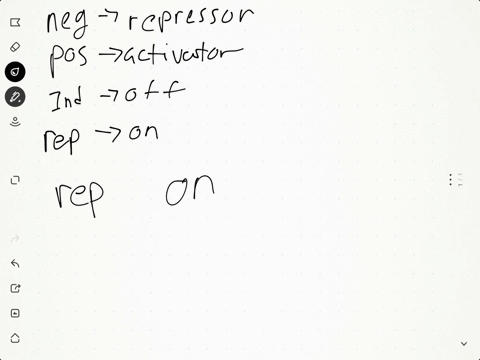 neg → repressor
pos → activator
Ind → off
rep → on
rep on